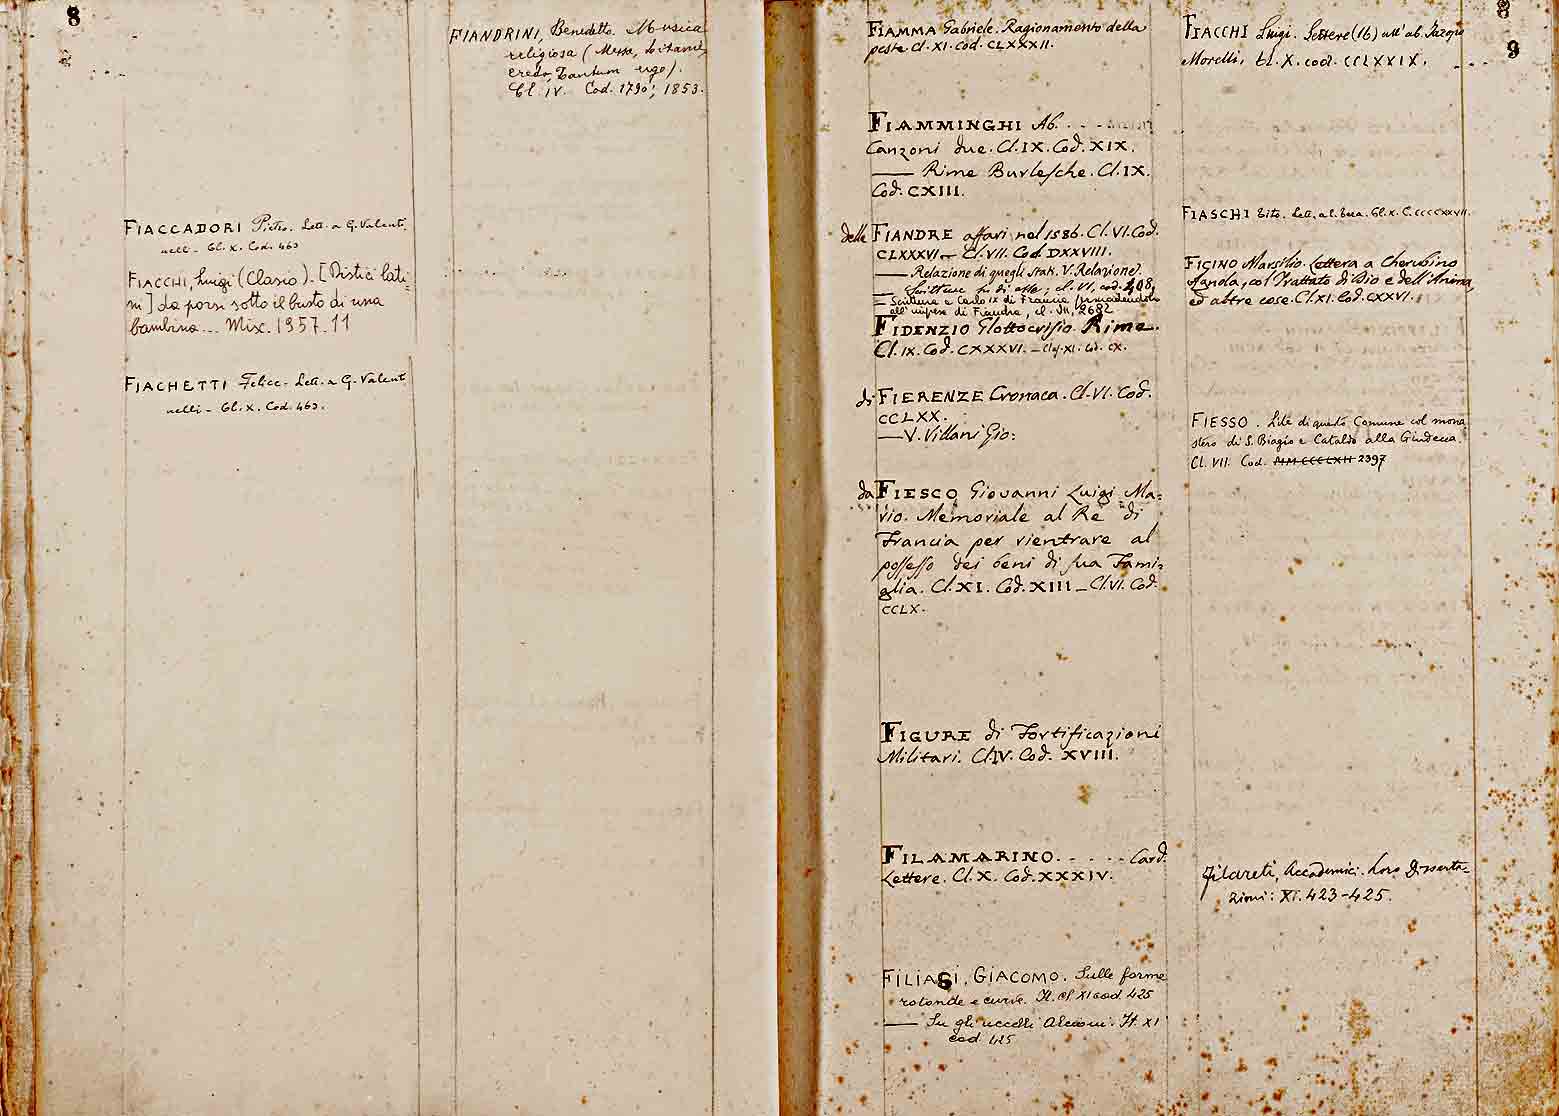 8
FIACCADORI Pietro. Lett. a G. Valenti
nelli - Cl. X. Cod. 463
FIACCHI, Luigi (Clasio). [Distici lati-
ni] da porsi sotto il busto di una
bambina... Misc. 1957. 11
FIACHETTI Felice - Lett. a G. Valenti
nelli - Cl. X. Cod. 463.
FIANDRINI, Benedetto. Musica
religiosa (Messa, Litanie,
credo, Tantum ergo).
Cl. IV. Cod. 1790; 1853.
FIAMMA Gabriele. Ragionamento della
peste Cl. XI. Cod. CLXXXII.
FIAMMINGHI Ab. . - - -
Canzoni due. Cl. IX. Cod. XIX.
— Rime Burlesche. Cl. IX.
Cod. CXIII.
delle FIANDRE affari nel 1586. Cl. VI. Cod.
CLXXXVI — Cl. VII. Cod. DXXVIII.
— Relazione di quegli stati. V. Relazione.
— Scritture su di esse; cl. VI, cod. 408,
= Scrittura a Carlo IX di Francia persuadendolo
all'impresa di Fiandra, cl. VII, 2682
FIDENZIO Glottocrisio. Rime.
Cl. IX. Cod. CXXXVI. — Clas. XI. Cod. CX.
di FIERENZE Cronaca. Cl. VI. Cod.
CCLXX.
— V. Villani Gio:
da FIESCO Giovanni Luigi Ma=
rio. Memoriale al Re di
Francia per rientrare al
possesso dei beni di sua Fami=
glia. Cl. XI. Cod. XIII — Cl. VI. Cod.
CCLX.
FIGURE di Fortificazioni
Militari. Cl. IV. Cod. XVIII.
FILAMARINO. - - - - - Card.
Lettere. Cl. X. Cod. XXXIV.
FILIASI, GIACOMO. Sulle forme
rotonde e curve. It. cl XI cod 425
— Su gli uccelli Alcioni. It. XI
cod 425
8
9
FIACCHI Luigi. Lettere (16) all'ab. Jacopo
Morelli. Cl. X. cod. CCLXXIX.
FIASCHI Tito. Lett. Cl. X. C. CCCCXXVII.
FICINO Marsilio. Lettera a Cherubino
Agnola, col Trattato di Dio e dell'Anima,
ed altre cose. Cl. XI. Cod. CXXVI.
FIESSO. Lite di questo Comune col mona
stero di S. Biagio e Cataldo alla Giudecca.
Cl. VII. Cod. MMCCCCLXII 2397
Filareti, Accademici. Loro Disserta=
zioni: XI. 423-425.